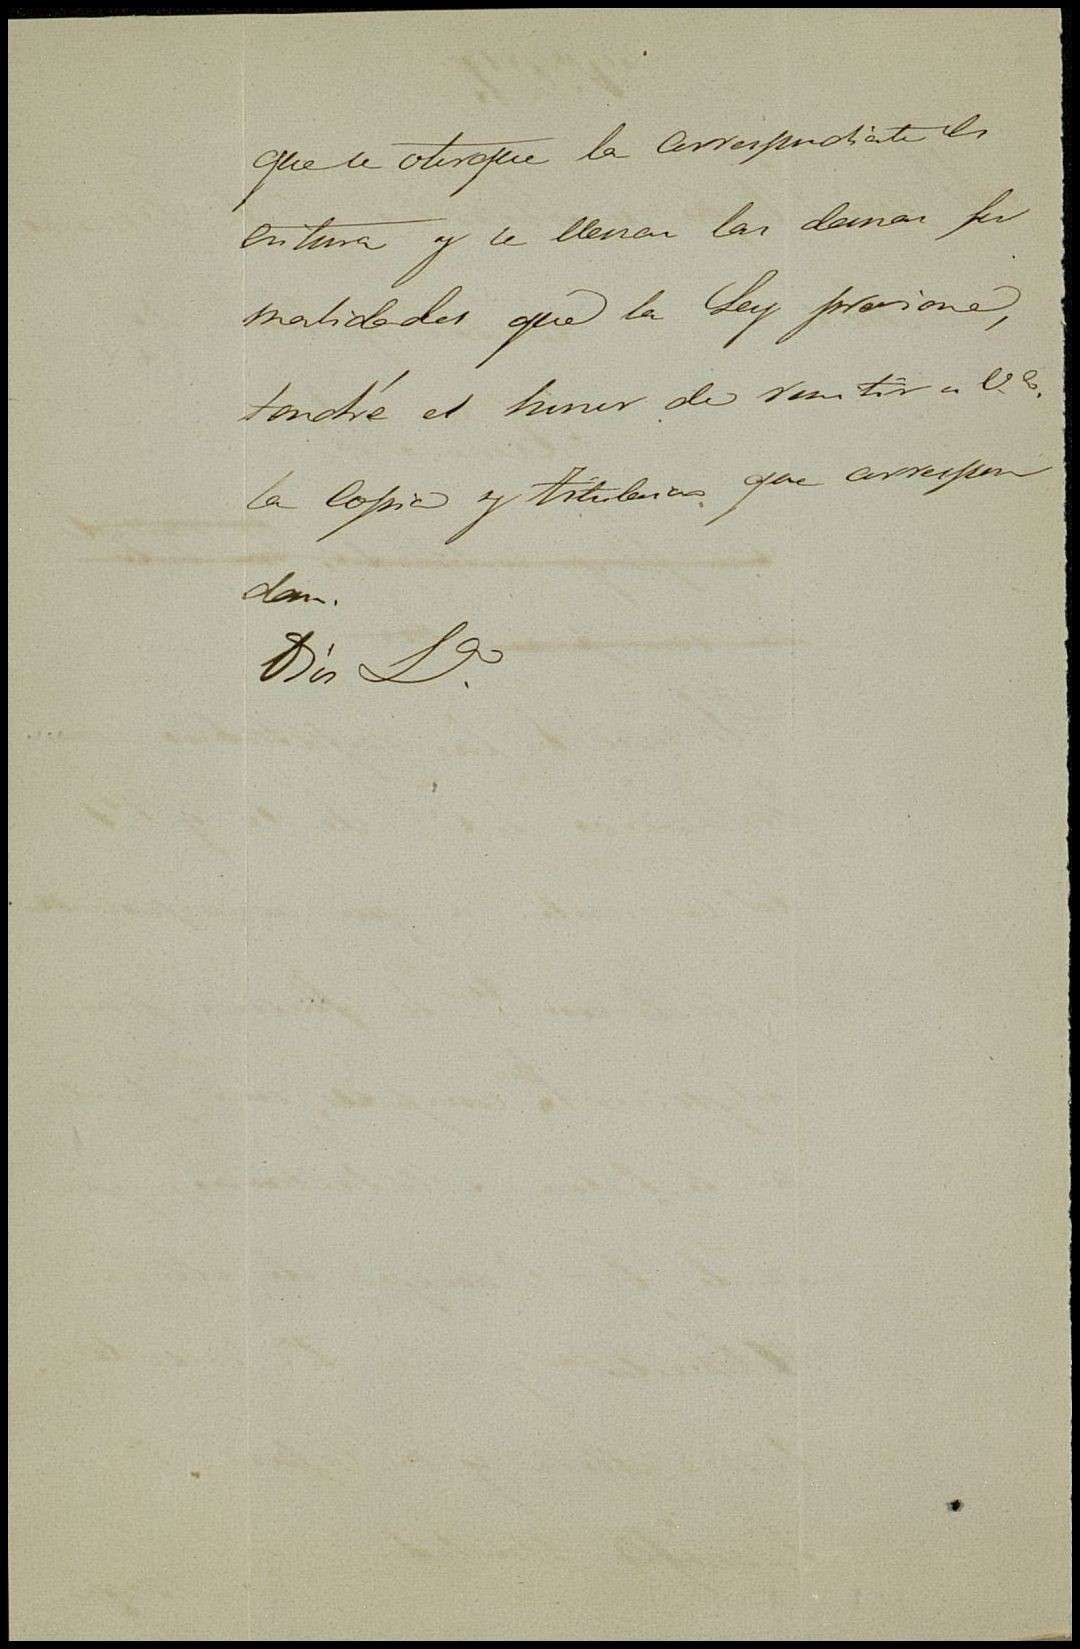 que se otorgue la correspondiente es
critura y se llenen las demas for
malidades que la Ley previene,
tendré el honor de remitir a V.E.
la copia y titulacion que correspon
dan.
Dios L.ª